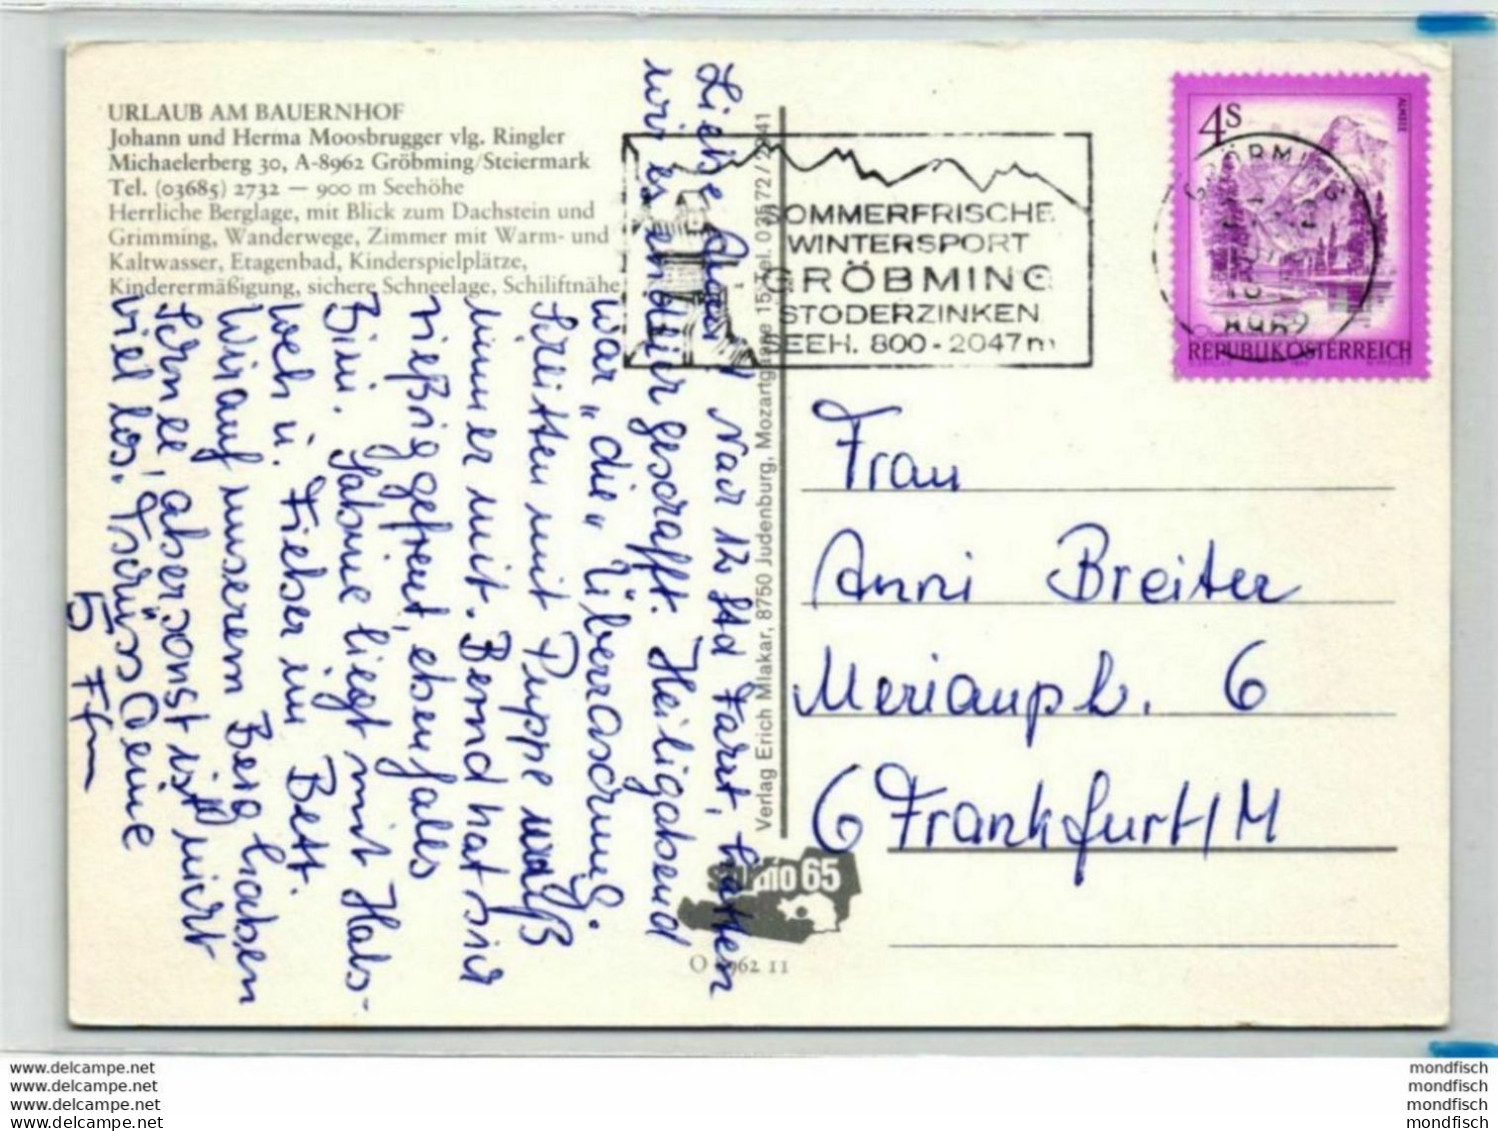 URLAUB AM BAUERNHOF
Johann und Herma Moosbrugger vlg. Ringler
Michaelerberg 30, A-8962 Gröbming/Steiermark
Tel. (03685) 2732 — 900 m Seehöhe
Herrliche Berglage, mit Blick zum Dachstein und
Grimming, Wanderwege, Zimmer mit Warm- und
Kaltwasser, Etagenbad, Kinderspielplätze,
Kinderermäßigung, sichere Schneelage, Schiliftnähe
Liebe Nach 12 Std Fahrt, hatten
wir es endlich geschafft. Heiligabend
war „die„ Überraschung.
Schlitten mit Puppe
immer mit. Bernd hat sich
riesig gefreut, ebenfalls
Bini. Sabine liegt mit Hals-
weh u. Fieber im Bett.
Wir auf unserem Berg haben
Schnee, aber sonst ist nicht
viel los. Tschüss Deine
5 Ffm
Verlag Erich Mlakar, 8750 Judenburg, Mozartgasse 15, Tel. 03572/2241
SOMMERFRISCHE
WINTERSPORT
GRÖBMING
STODERZINKEN
SEEH. 800-2047m
4S
ALMSEE
GRÖBMING
8962
REPUBLIK ÖSTERREICH
Frau
Anni Breiter
Merianpl. 6
6 Frankfurt/M
studio 65
O 8962 11
www.delcampe.net
www.delcampe.net
www.delcampe.net
www.delcampe.net
mondfisch
mondfisch
mondfisch
mondfisch